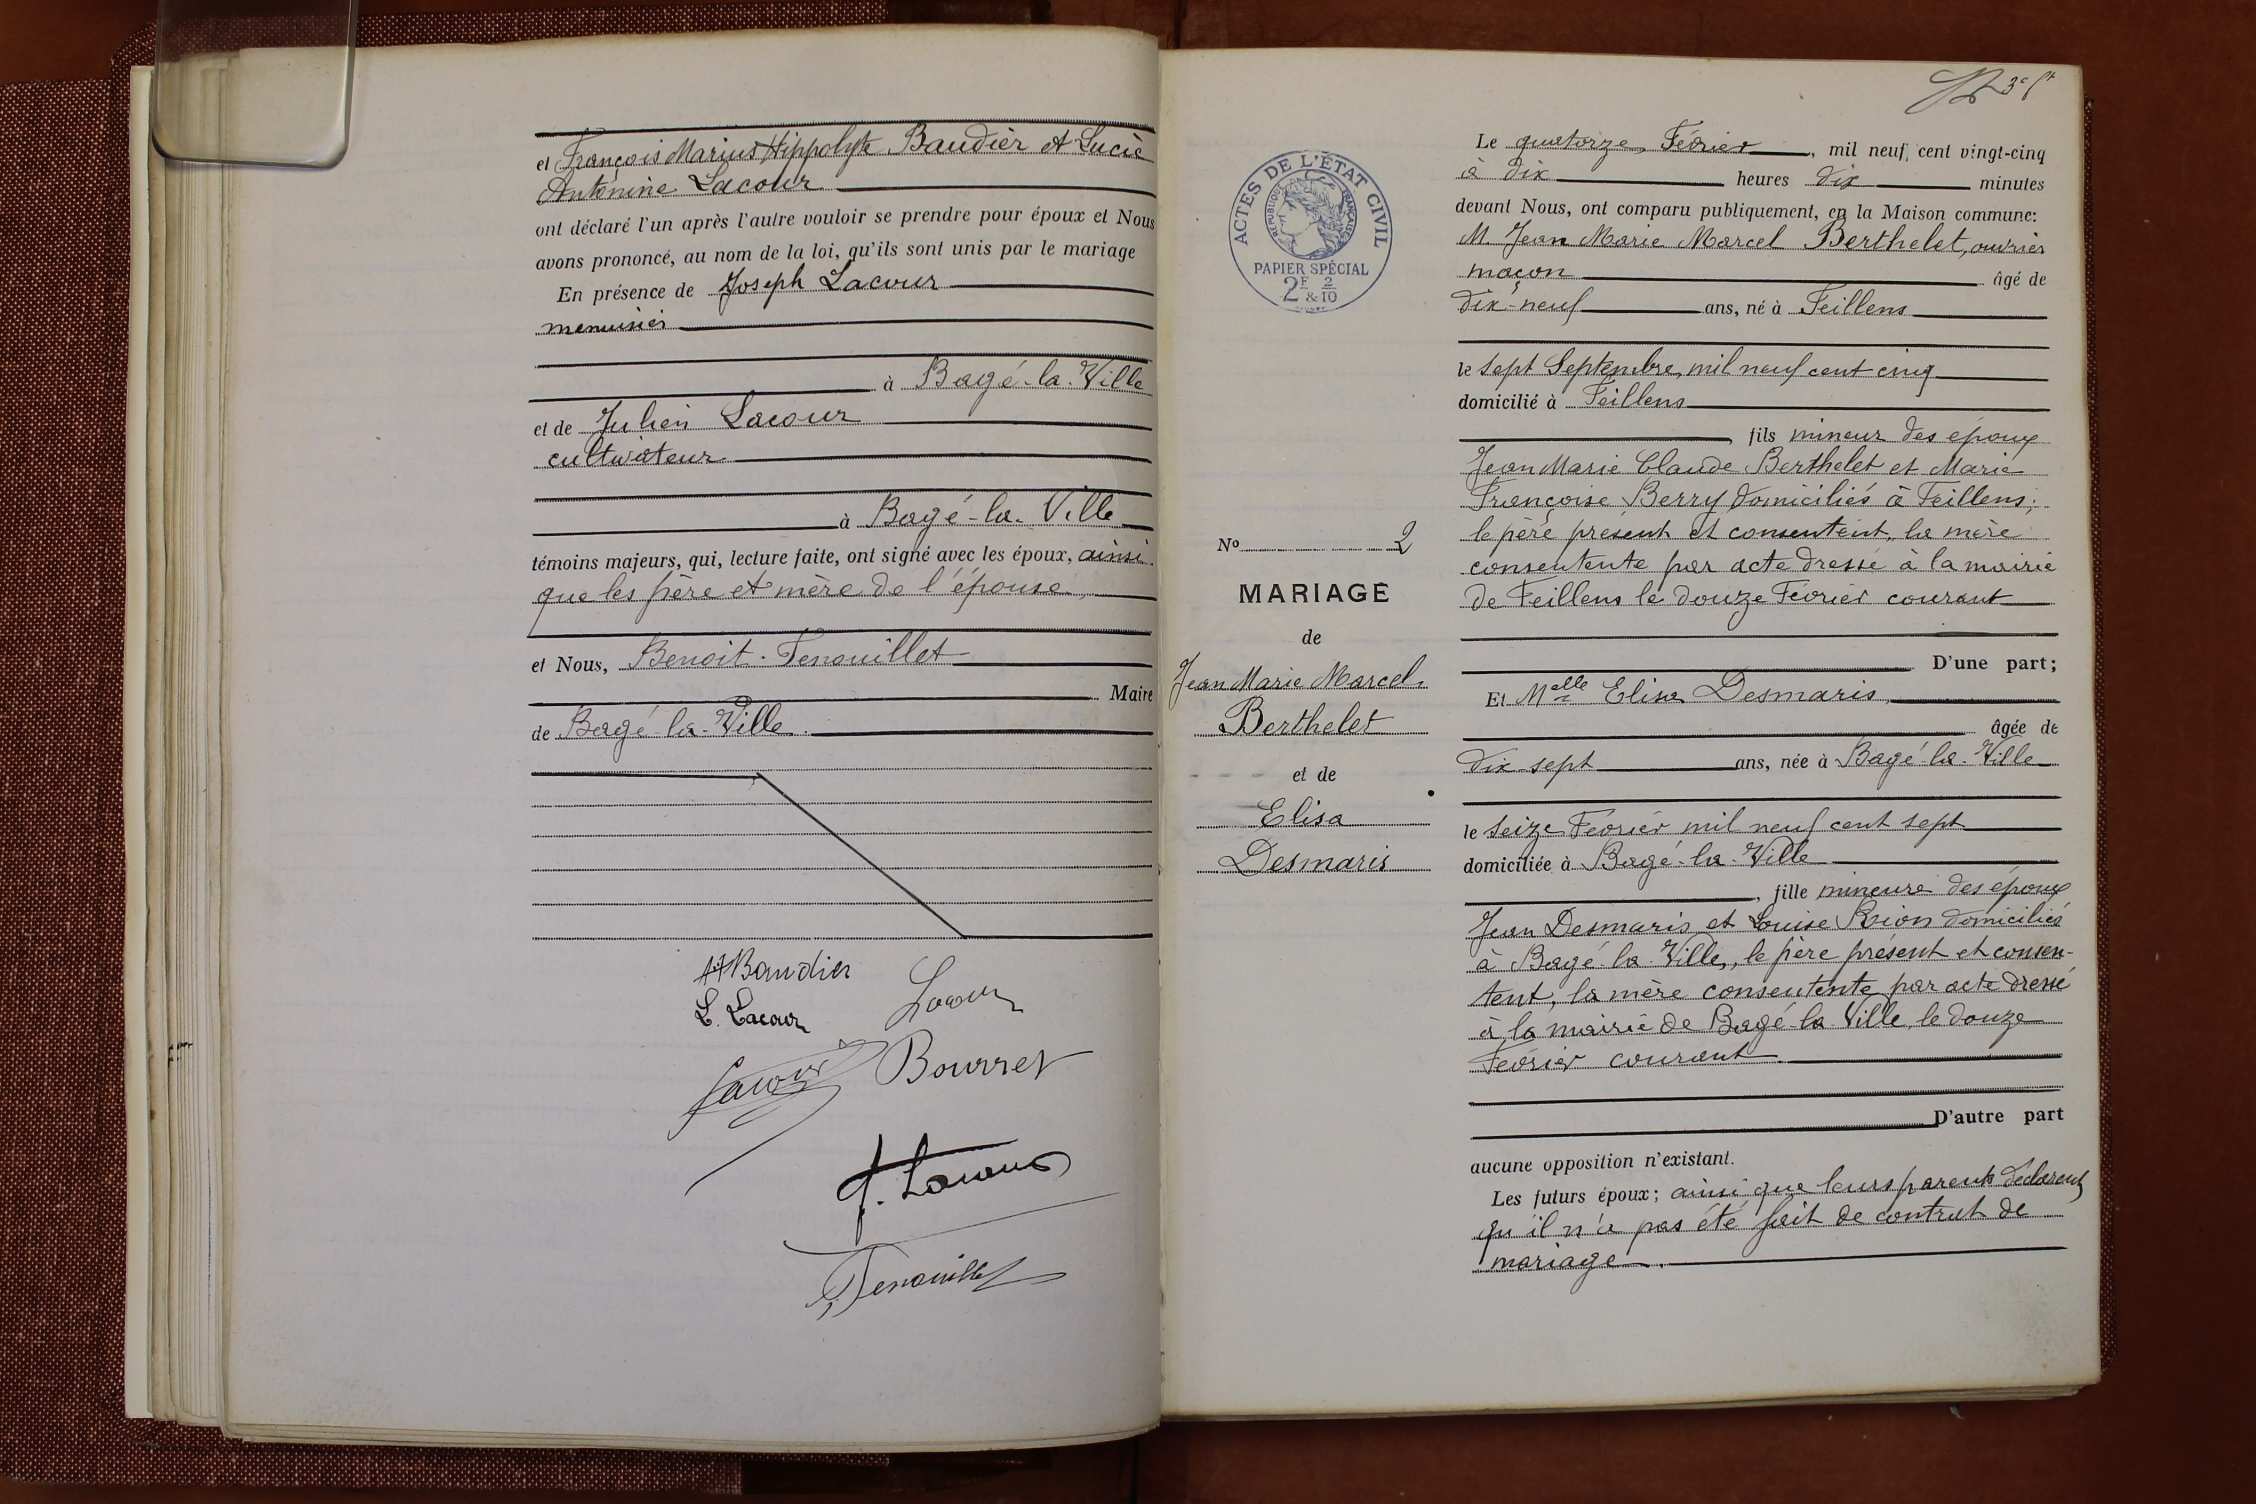 et François Marius Hippolyte Baudier et Lucie
Antonine Lacour
ont déclaré l'un après l'autre vouloir se prendre pour époux et Nous
avons prononcé, au nom de la loi, qu'ils sont unis par le mariage
En présence de Joseph Lacour
menuisier
à Bagé-la-Ville
et de Julien Lacour
cultivateur
à Bagé-la-Ville
témoins majeurs, qui, lecture faite, ont signé avec les époux, ainsi
que les père et mère de l'épouse,
et Nous, Benoit Fenouillet
Maire
de Bagé-la-Ville.
Baudier
L. Lacour
Lacour
Lacour
Bourret
J. Lacour
Fenouillet
3e ft
ACTES DE L'ÉTAT CIVIL
RÉPUBLIQUE FRANÇAISE
PAPIER SPÉCIAL
2F 2
& 10
No 2
MARIAGE
de
Jean Marie Marcel
Berthelet
et de
Elisa
Desmaris
Le quatorze Février, mil neuf cent vingt-cinq
à dix heures dix minutes
devant Nous, ont comparu publiquement, en la Maison commune:
M. Jean Marie Marcel Berthelet, ouvrier
maçon âgé de
dix-neuf ans, né à Feillens
le sept Septembre mil neuf cent cinq
domicilié à Feillens
, fils mineur des époux
Jean Marie Claude Berthelet et Marie
Françoise Berry domiciliés à Feillens;
le père présent et consentent, la mère
consentente par acte dressé à la mairie
de Feillens le douze Février courant
D'une part;
Et Melle Elisa Desmaris,
âgée de
dix sept ans, née à Bagé-la-Ville
le seize Février mil neuf cent sept
domiciliée à Bagé-la-Ville
, fille mineure des époux
Jean Desmaris et Louise Rion domiciliés
à Bagé-la-Ville, le père présent et consen-
tent, la mère consentente par acte dressé
à la mairie de Bagé-la-Ville le douze
Février courant.
D'autre part
aucune opposition n'existant.
Les futurs époux; ainsi que leurs parents déclarent
qu'il n'a pas été fait de contrat de
mariage.